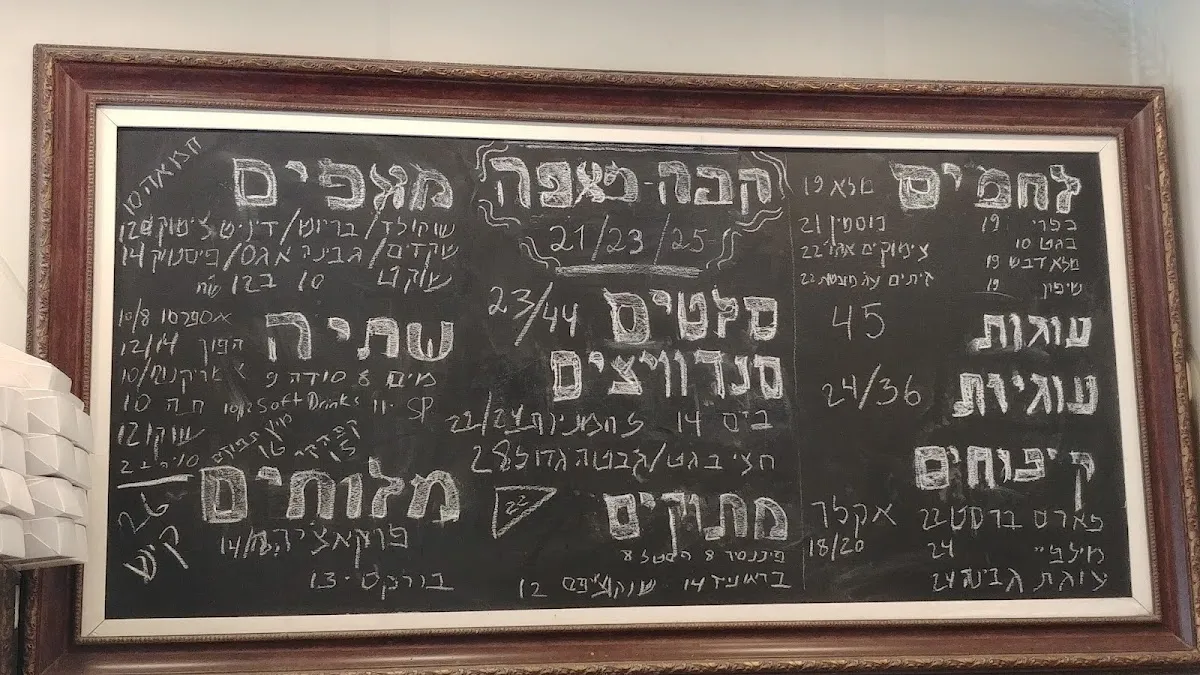 לחמים
מלא 19
כפרי 19
כוסמין 21
בגט 10
מלא דבש 19
שיפון 19
זיתים
22
עוגות 45
עוגיות 24/36
קיפוחים
פארס ברסט 22
אקלר
18/20
מילפיי 24
עוגת גבינה 24
קפה-מאפה
21/23/25
סלטים 23/44
סנדוויצים
ביס 14 לחמניות 22/24
חצי בגט/גבטה גדול 28
מתוקים
22
פיננסר 8
בראוניז 14 שוקוצ'יפס 12
מאפים
חמאה 10
שוקולד/בריוש/דניש צימוק 12
שקדים/גבינה אגס/פיסטוק 14
10 ב 12
שתיה
אספרסו 10/8
הפוך 12/14
אמריקנו 10
מים 8 סודה 9
תה 10
Soft Drinks 11
שוקו 12
מיץ תפוזים
מלוחים
פוקאצ'יה 14
בורקס 13
קיש 26